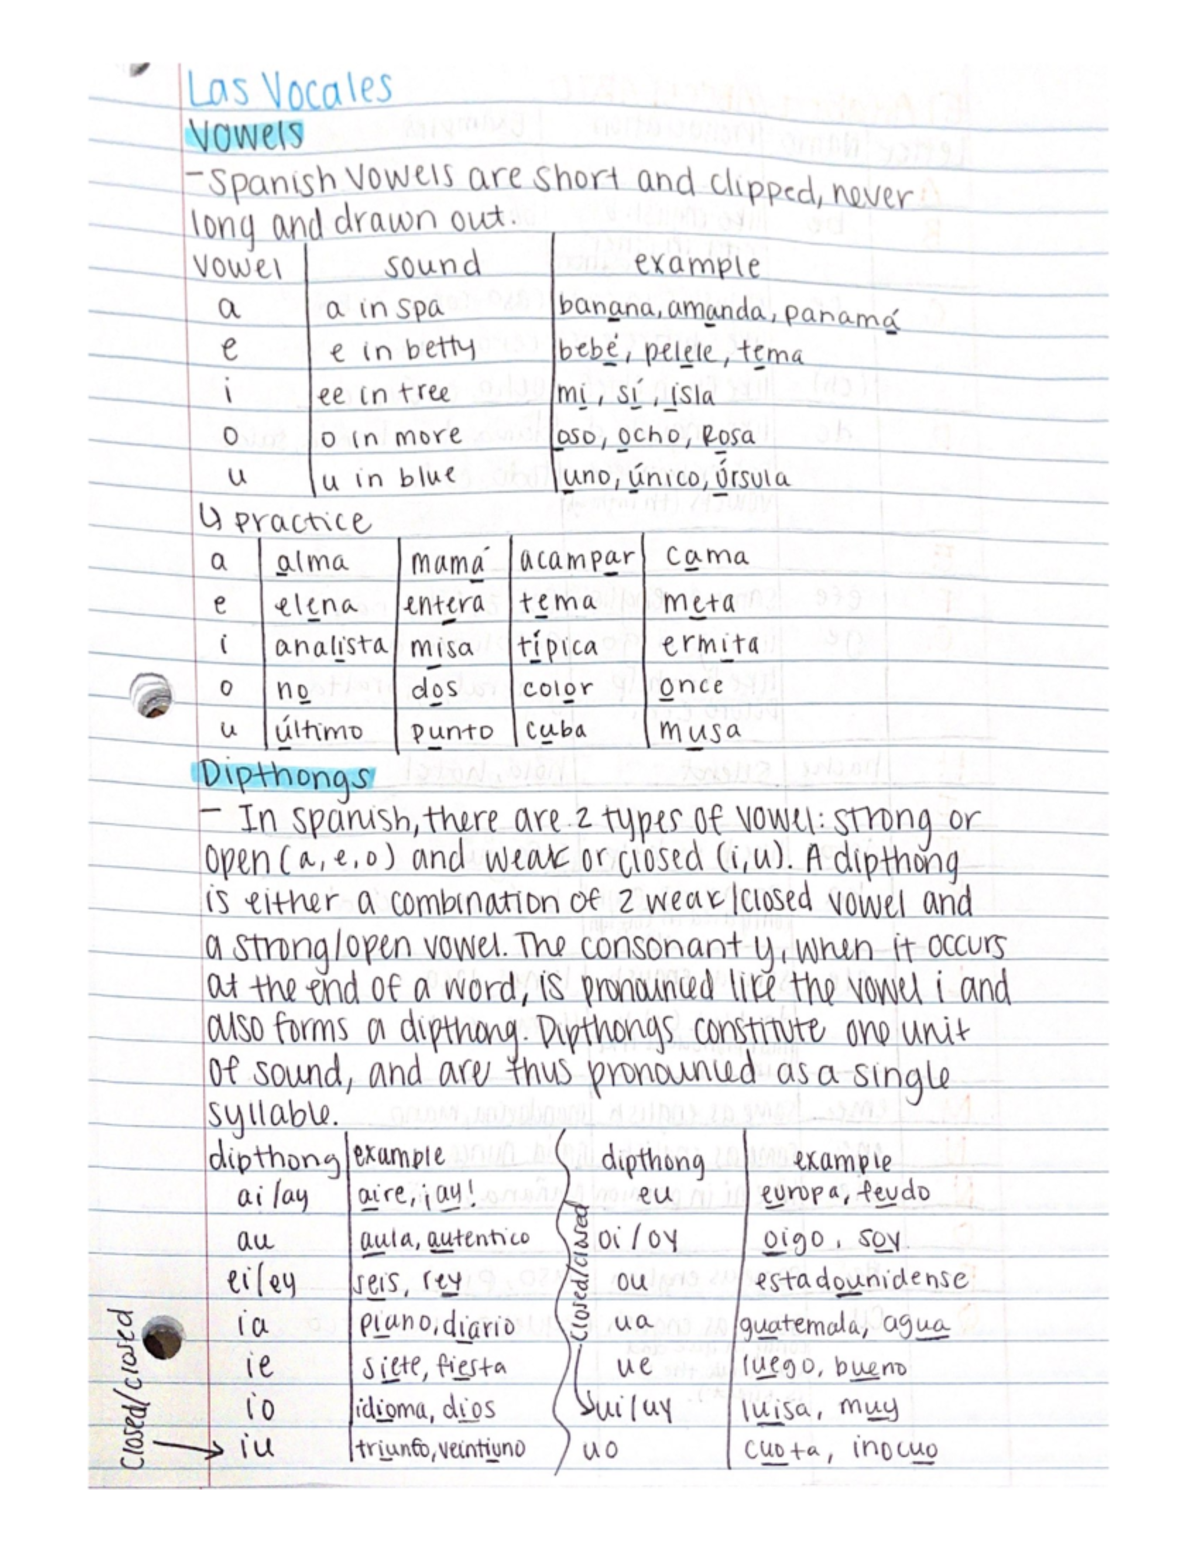 Las Vocales
Vowels
- Spanish vowels are short and clipped, never
long and drawn out.
vowel sound example
a a in spa banana, amanda, panamá
e e in betty bebé, pelele, tema
i ee in tree mi, sí, isla
o o in more oso, ocho, Rosa
u u in blue uno, único, Úrsula
↳ practice
a alma mamá acampar cama
e elena entera tema meta
i analista misa típica ermita
o no dos color once
u último punto cuba musa
Dipthongs
- In spanish, there are 2 types of vowel: strong or
open (a, e, o) and weak or closed (i, u). A dipthong
is either a combination of 2 weak/closed vowel and
a strong/open vowel. The consonant y, when it occurs
at the end of a word, is pronounced like the vowel i and
also forms a dipthong. Dipthongs constitute one unit
of sound, and are thus pronounced as a single
syllable.
dipthong example dipthong example
ai/ay aire, ¡ay! eu europa, feudo
au aula, autentico oi/oy oigo, soy
ei/ey seis, rey ou estadounidense
ia piano, diario ua guatemala, agua
ie siete, fiesta ue luego, bueno
io idioma, dios ui/uy luisa, muy
iu triunfo, veintiuno uo cuota, inocuo
closed/closed
closed/closed